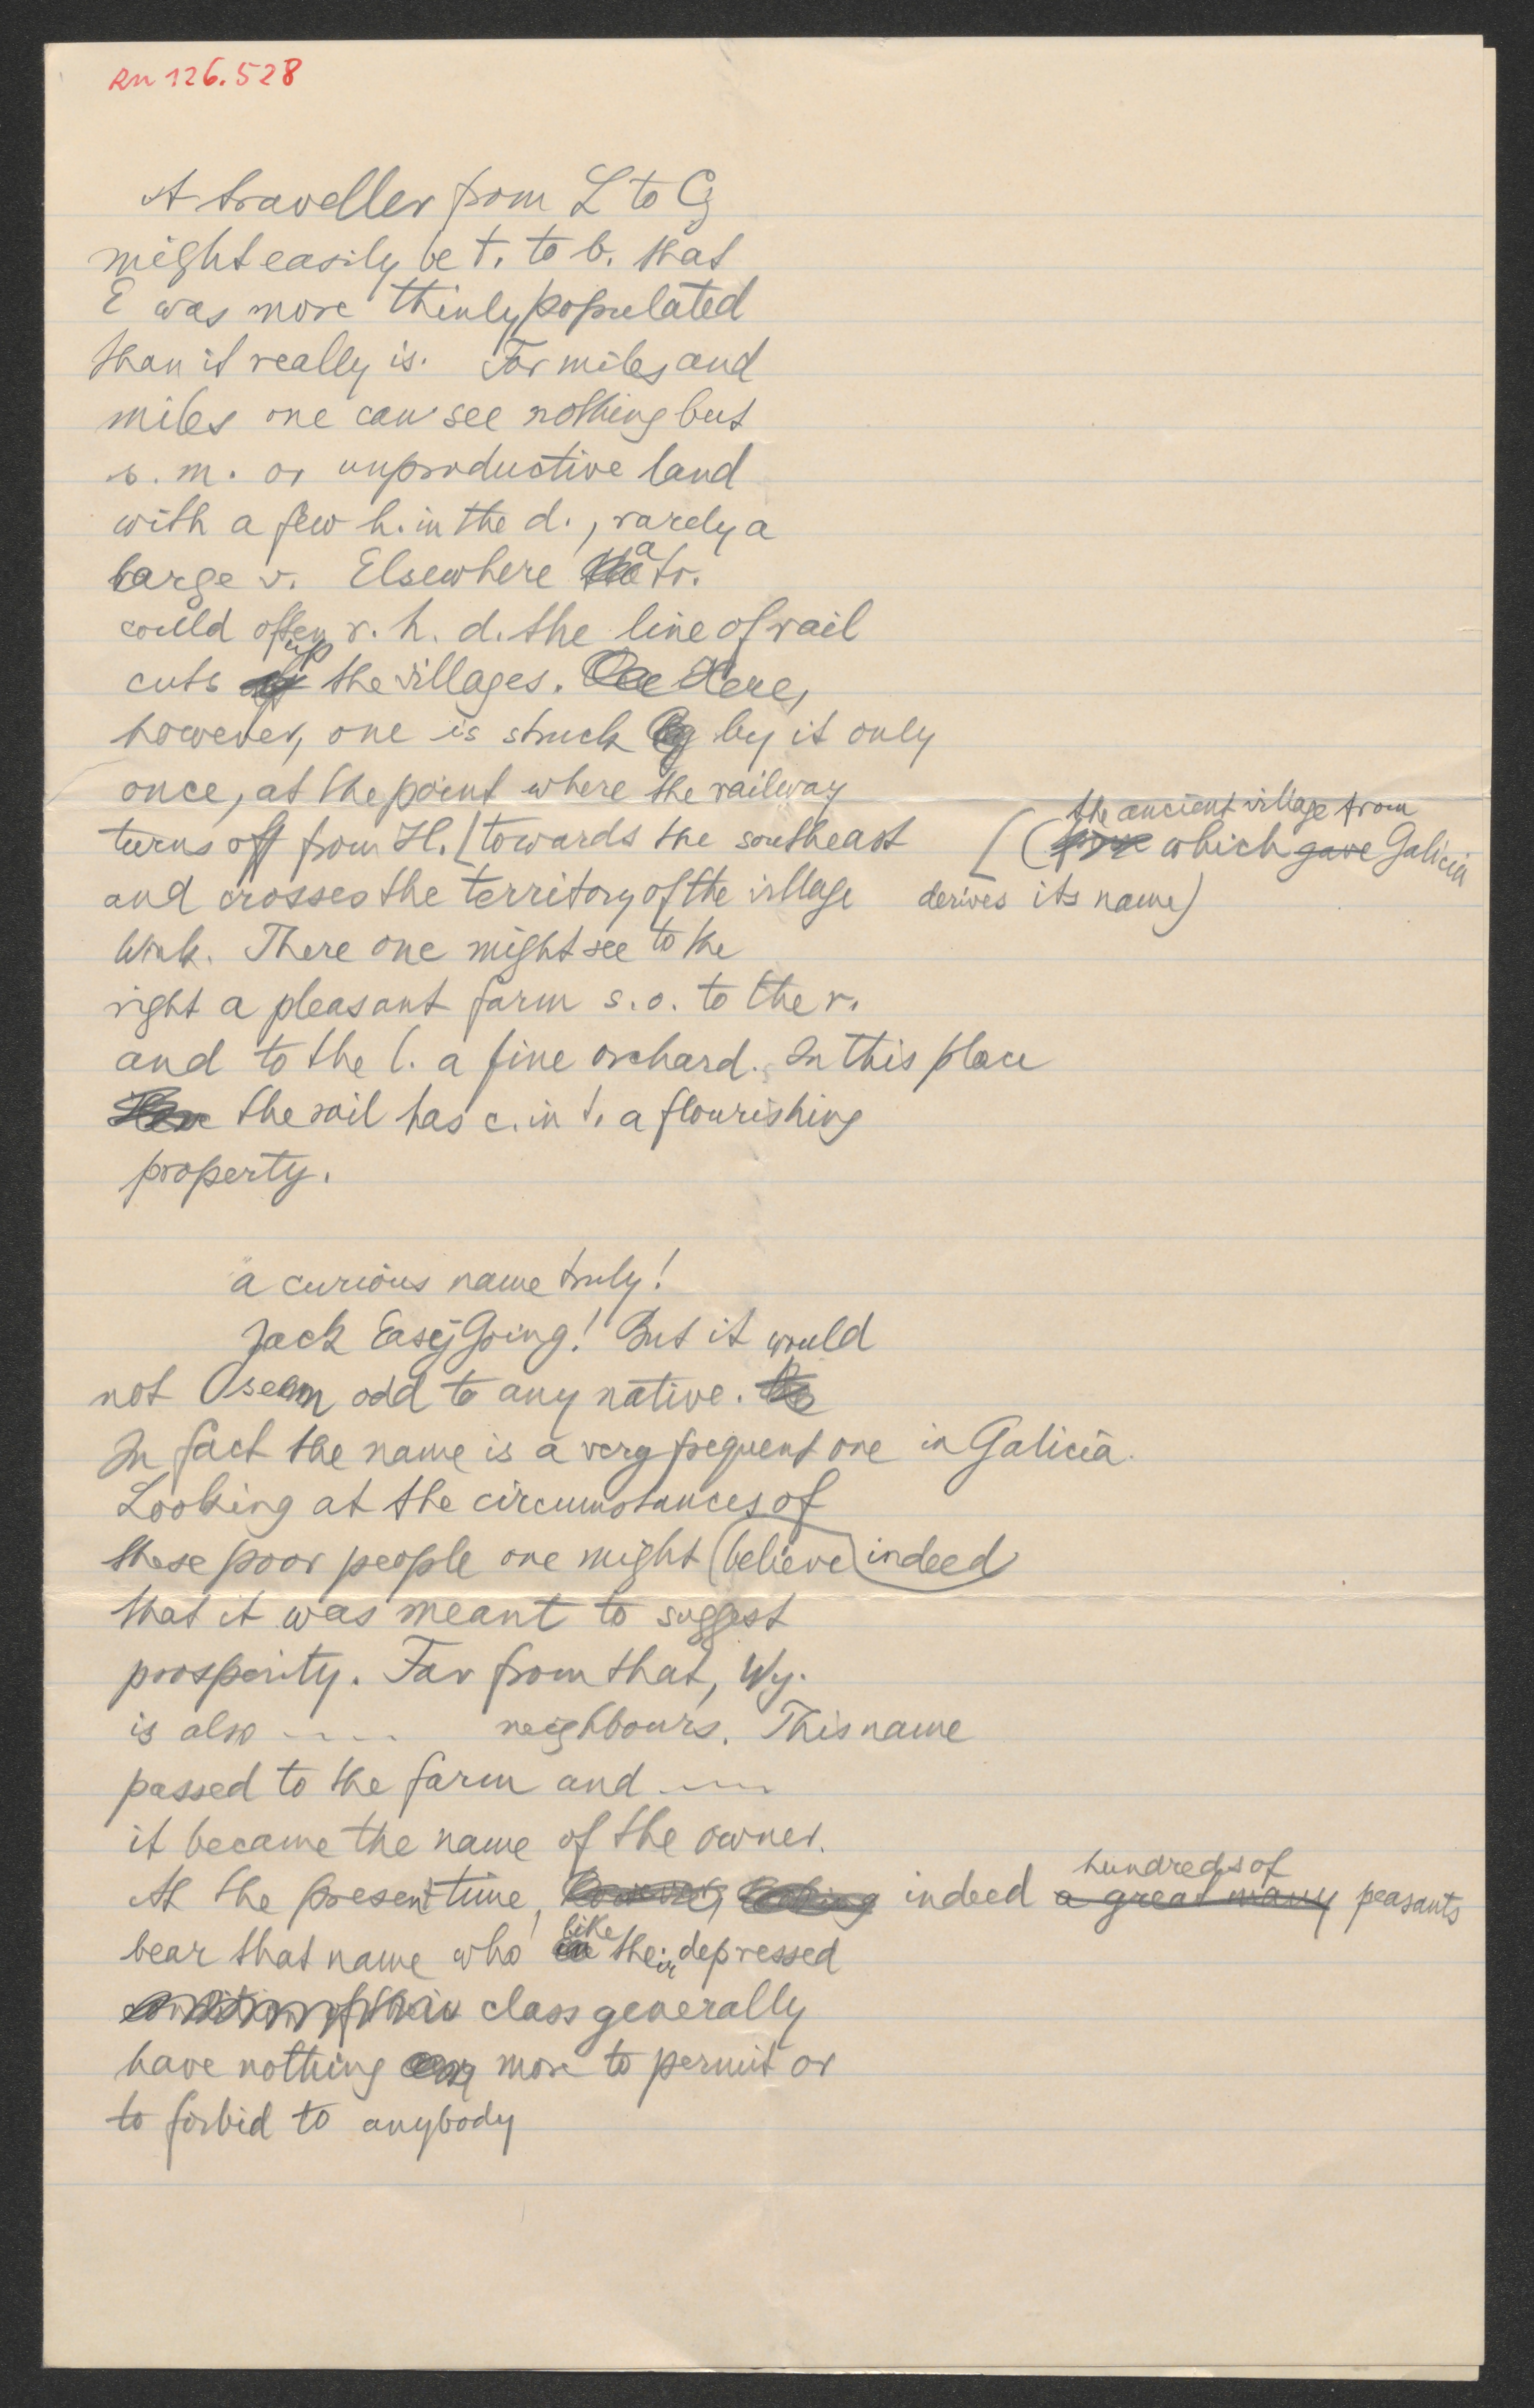 RN 126.528
A traveller from L to Cz
might easily be t. to b. that
E was more thinly populated
than it really is. For miles and
miles one can see nothing but
s. m. or unproductive land
with a few h. in the d., rarely a
large v. Elsewhere a tr.
could often r. h. d. the line of rail
cuts up the villages. Here,
however, one is struck by it only
once, at the point where the railway
turns off from H. [towards the southeast
[(the ancient village from which gave Galicia
derives its name)
and crosses the territory of the village
Wink. There one might see to the
right a pleasant farm s.o. to the r.
and to the l. a fine orchard. In this place
the rail has c. in t. a flourishing
property.
a curious name truly!
Jack EasyGoing! But it would
not seem odd to any native.
In fact the name is a very frequent one in Galicia.
Looking at the circumstances of
these poor people one might (believe) indeed
that it was meant to suggest
prosperity. Far from that, Wy.
is also ---- neighbours. This name
passed to the farm and ----
it became the name of the owner.
At the present time, indeed hundreds of a great many peasants
bear that name who like their depressed
class generally
have nothing more to permit or
to forbid to anybody